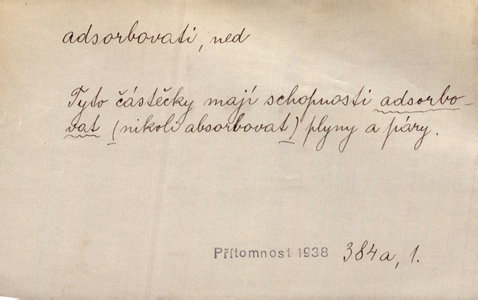 adsorbovati, ned
Tyto částěčky mají schopnosti adsorbo-
vat (nikoli absorbovat) plyny a páry.
Přítomnost 1938 384a, 1.